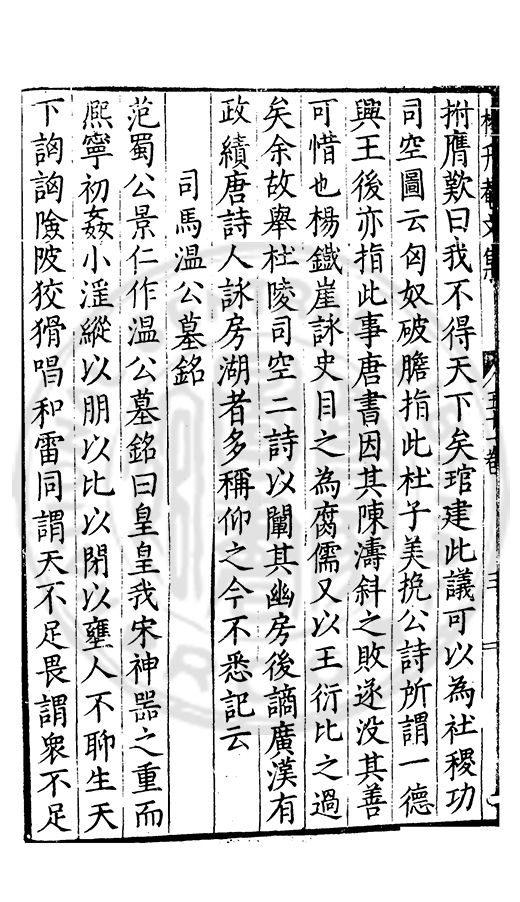 拊膺歎曰我不得天下矣琯建此議可以為社稷功
司空圖云匈奴破膽指此杜子美挽公詩所謂一德
興王後亦指此事唐書因其陳濤斜之敗遂没其善
可惜也楊鐵崖詠史目之為腐儒又以王衍比之過
矣余故舉杜陵司空二詩以闡其幽房後謫廣漢有
政績唐詩人詠房湖者多稱仰之今不悉記云
司馬温公墓銘
范蜀公景仁作温公墓銘曰皇皇我宋神器之重而
熈寧初姦小滛縱以朋以比以閉以壅人不聊生天
下詾詾險陂狡猾唱和雷同謂天不足畏謂衆不足